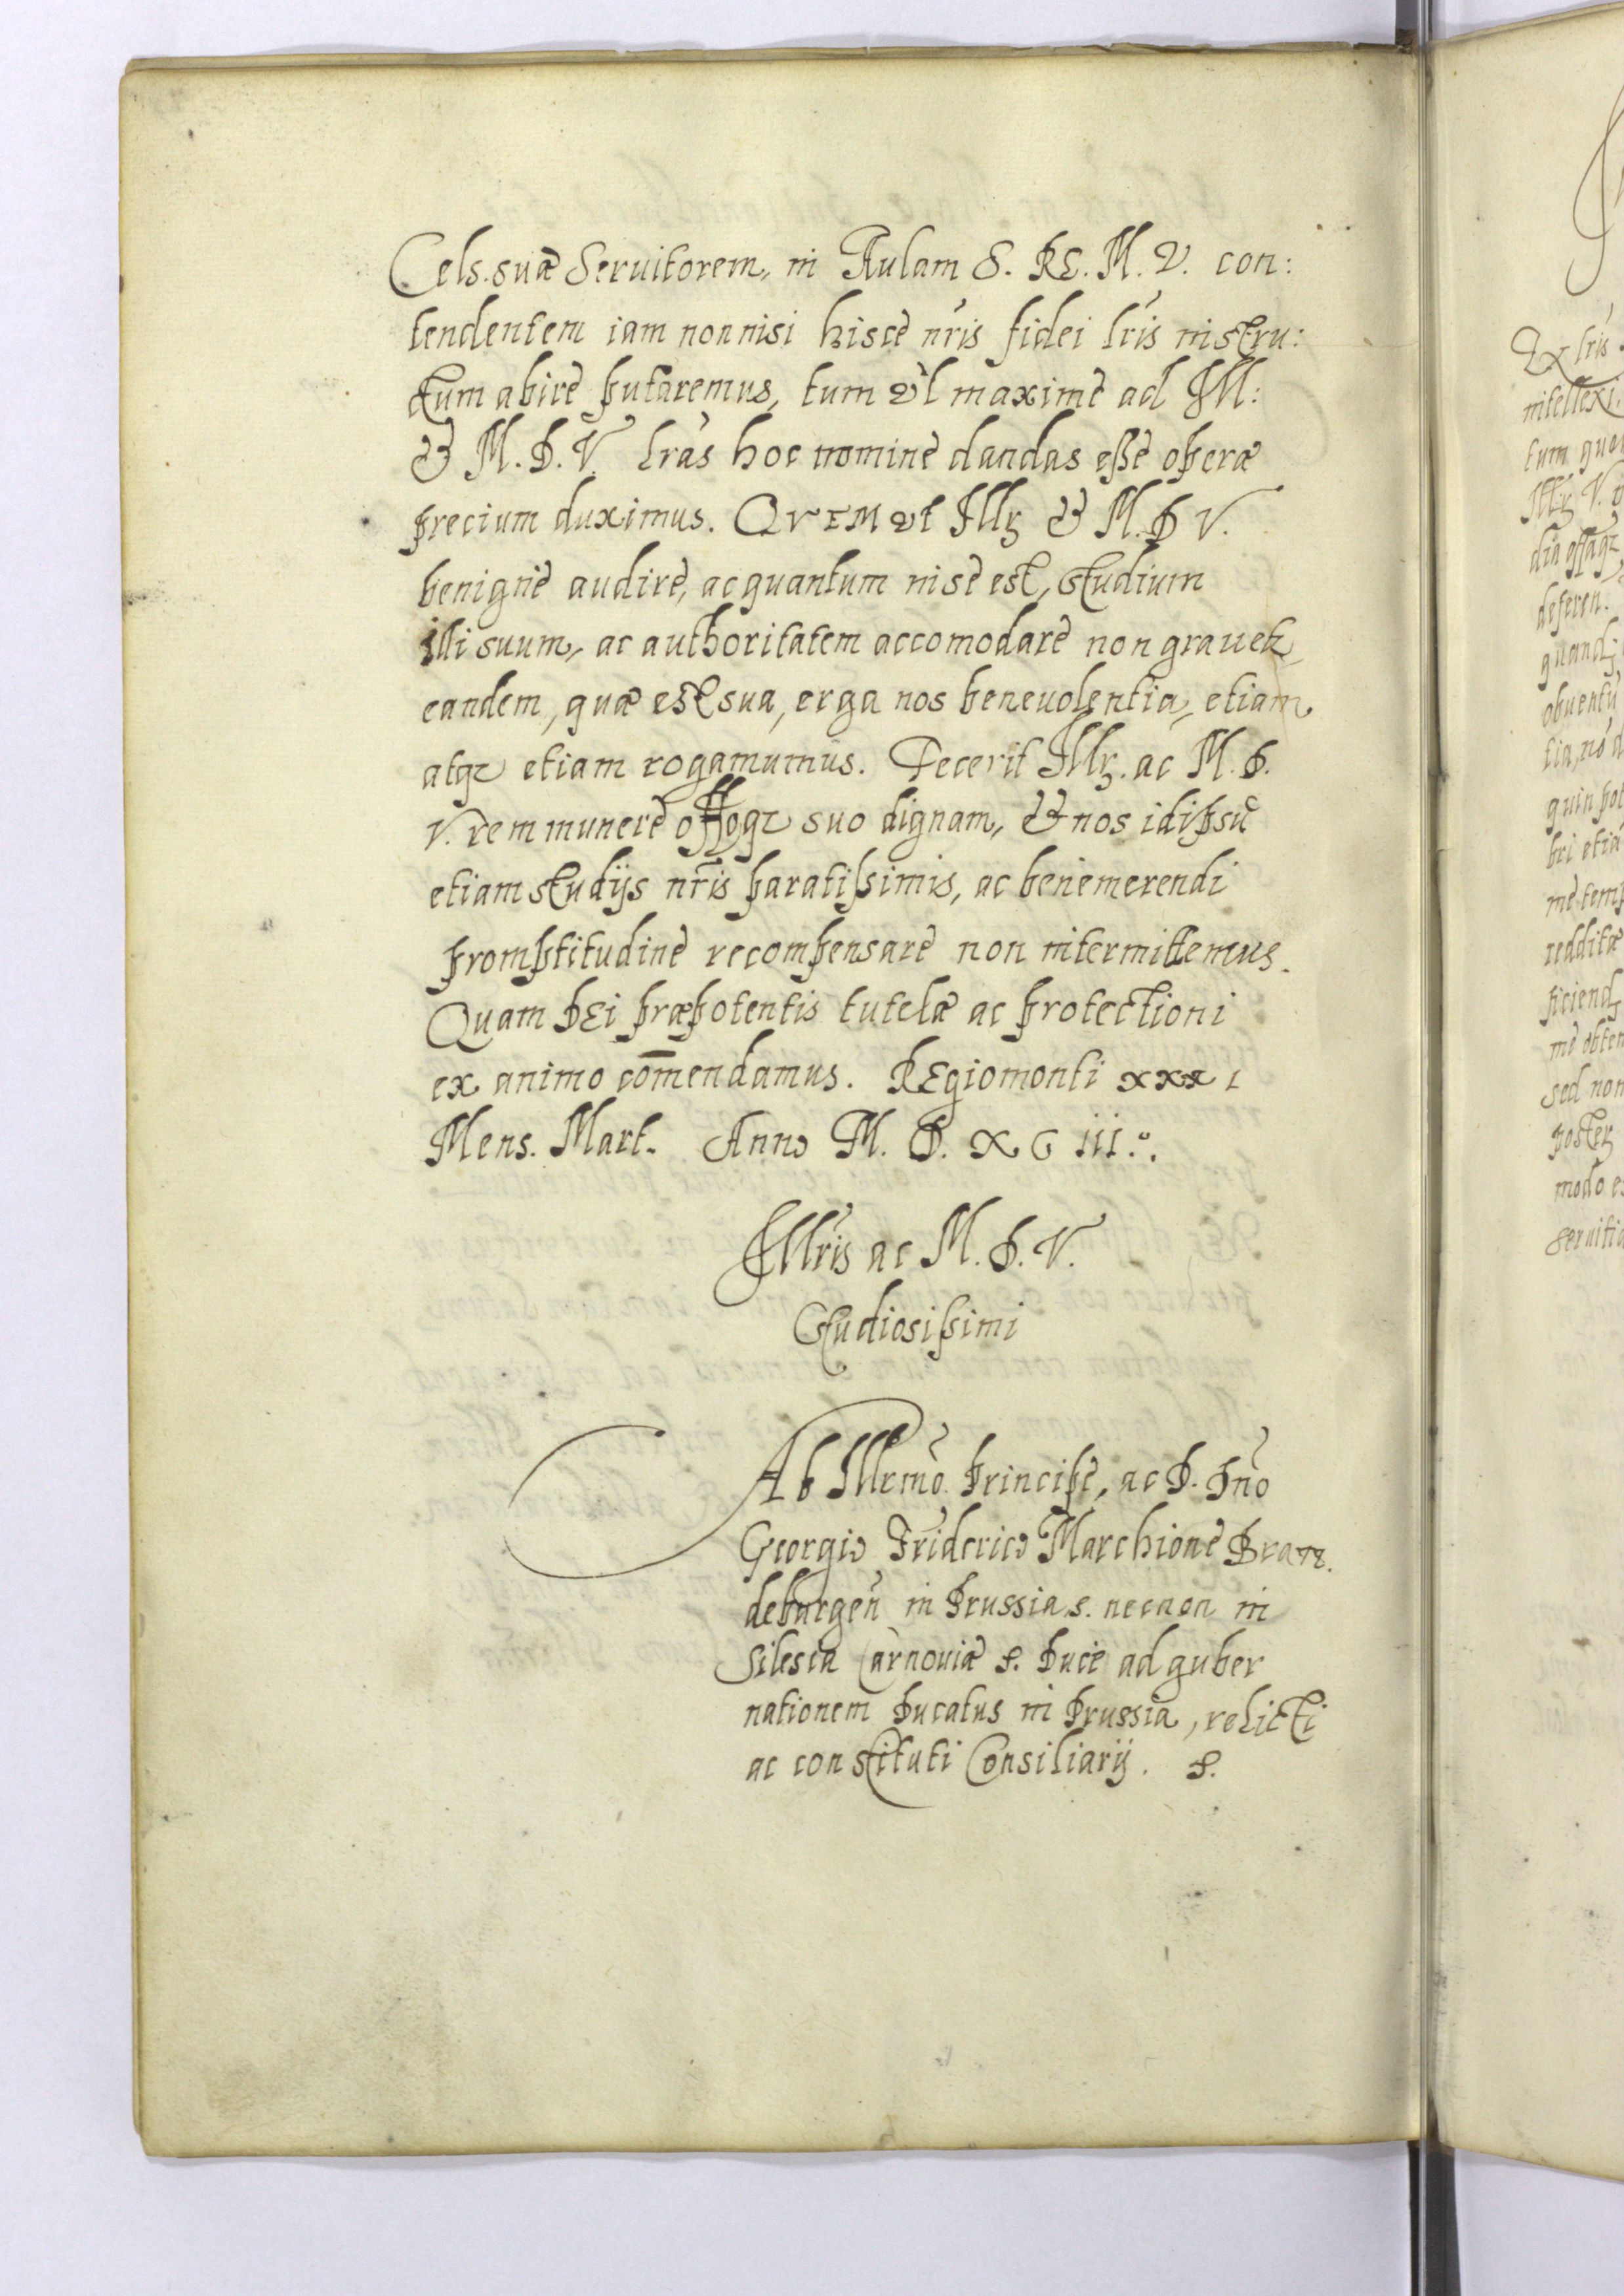 Cels. suæ Seruitorem, in Aulam S. RE. M. V. con:
tendentem iam non nisi hisce nr̃is fidei lr̃is instru:
ctum abire putaremus, tum vl maxime ad Ill:
& M. D. V. lr̃as hoc nomine dandas esse operæ
precium duximus. QVEM vt Illꝫ & M. D V.
benigne audire, ac quantum in se est, studium
illi suum, ac authoritatem accomodare non grauetꝫ
eandem, quæ est sua, erga nos beneuolentia, etiam
atqꝫ etiam rogamumus. Fecerit Illꝫ. ac M. D.
V. rem munere offoqꝫ suo dignam, & nos id ipsũ
etiam studijs nr̃is paratissimis, ac benemerendi
promptitudine recompensare non intermittemus.
Quam DEi præpotentis tutelæ ac protectioni
ex animo com̃endamus. REgiomonti xxx i
Mens. Mart. Anno M. D. XC iii.
Illr̃is ac M. D. V.
Studiosissimi
Ab Illr̃mo. Principe, ac D. Dño
Georgio Friderico Marchione Bran.
deburgeñ in Prussia s. necnon in
Silesia Carnouiæ s. Duce ad guber
nationem Ducatus in Prussia, relicti
ac constituti Consiliarij. s.
Ex lr̃is
intellexi
tum quo
Illꝫ V.
deferen.
quin po
bri etiã
me temp
redditæ
ficiend
me obten
sed non
posteꝫ
modo es
seruitia